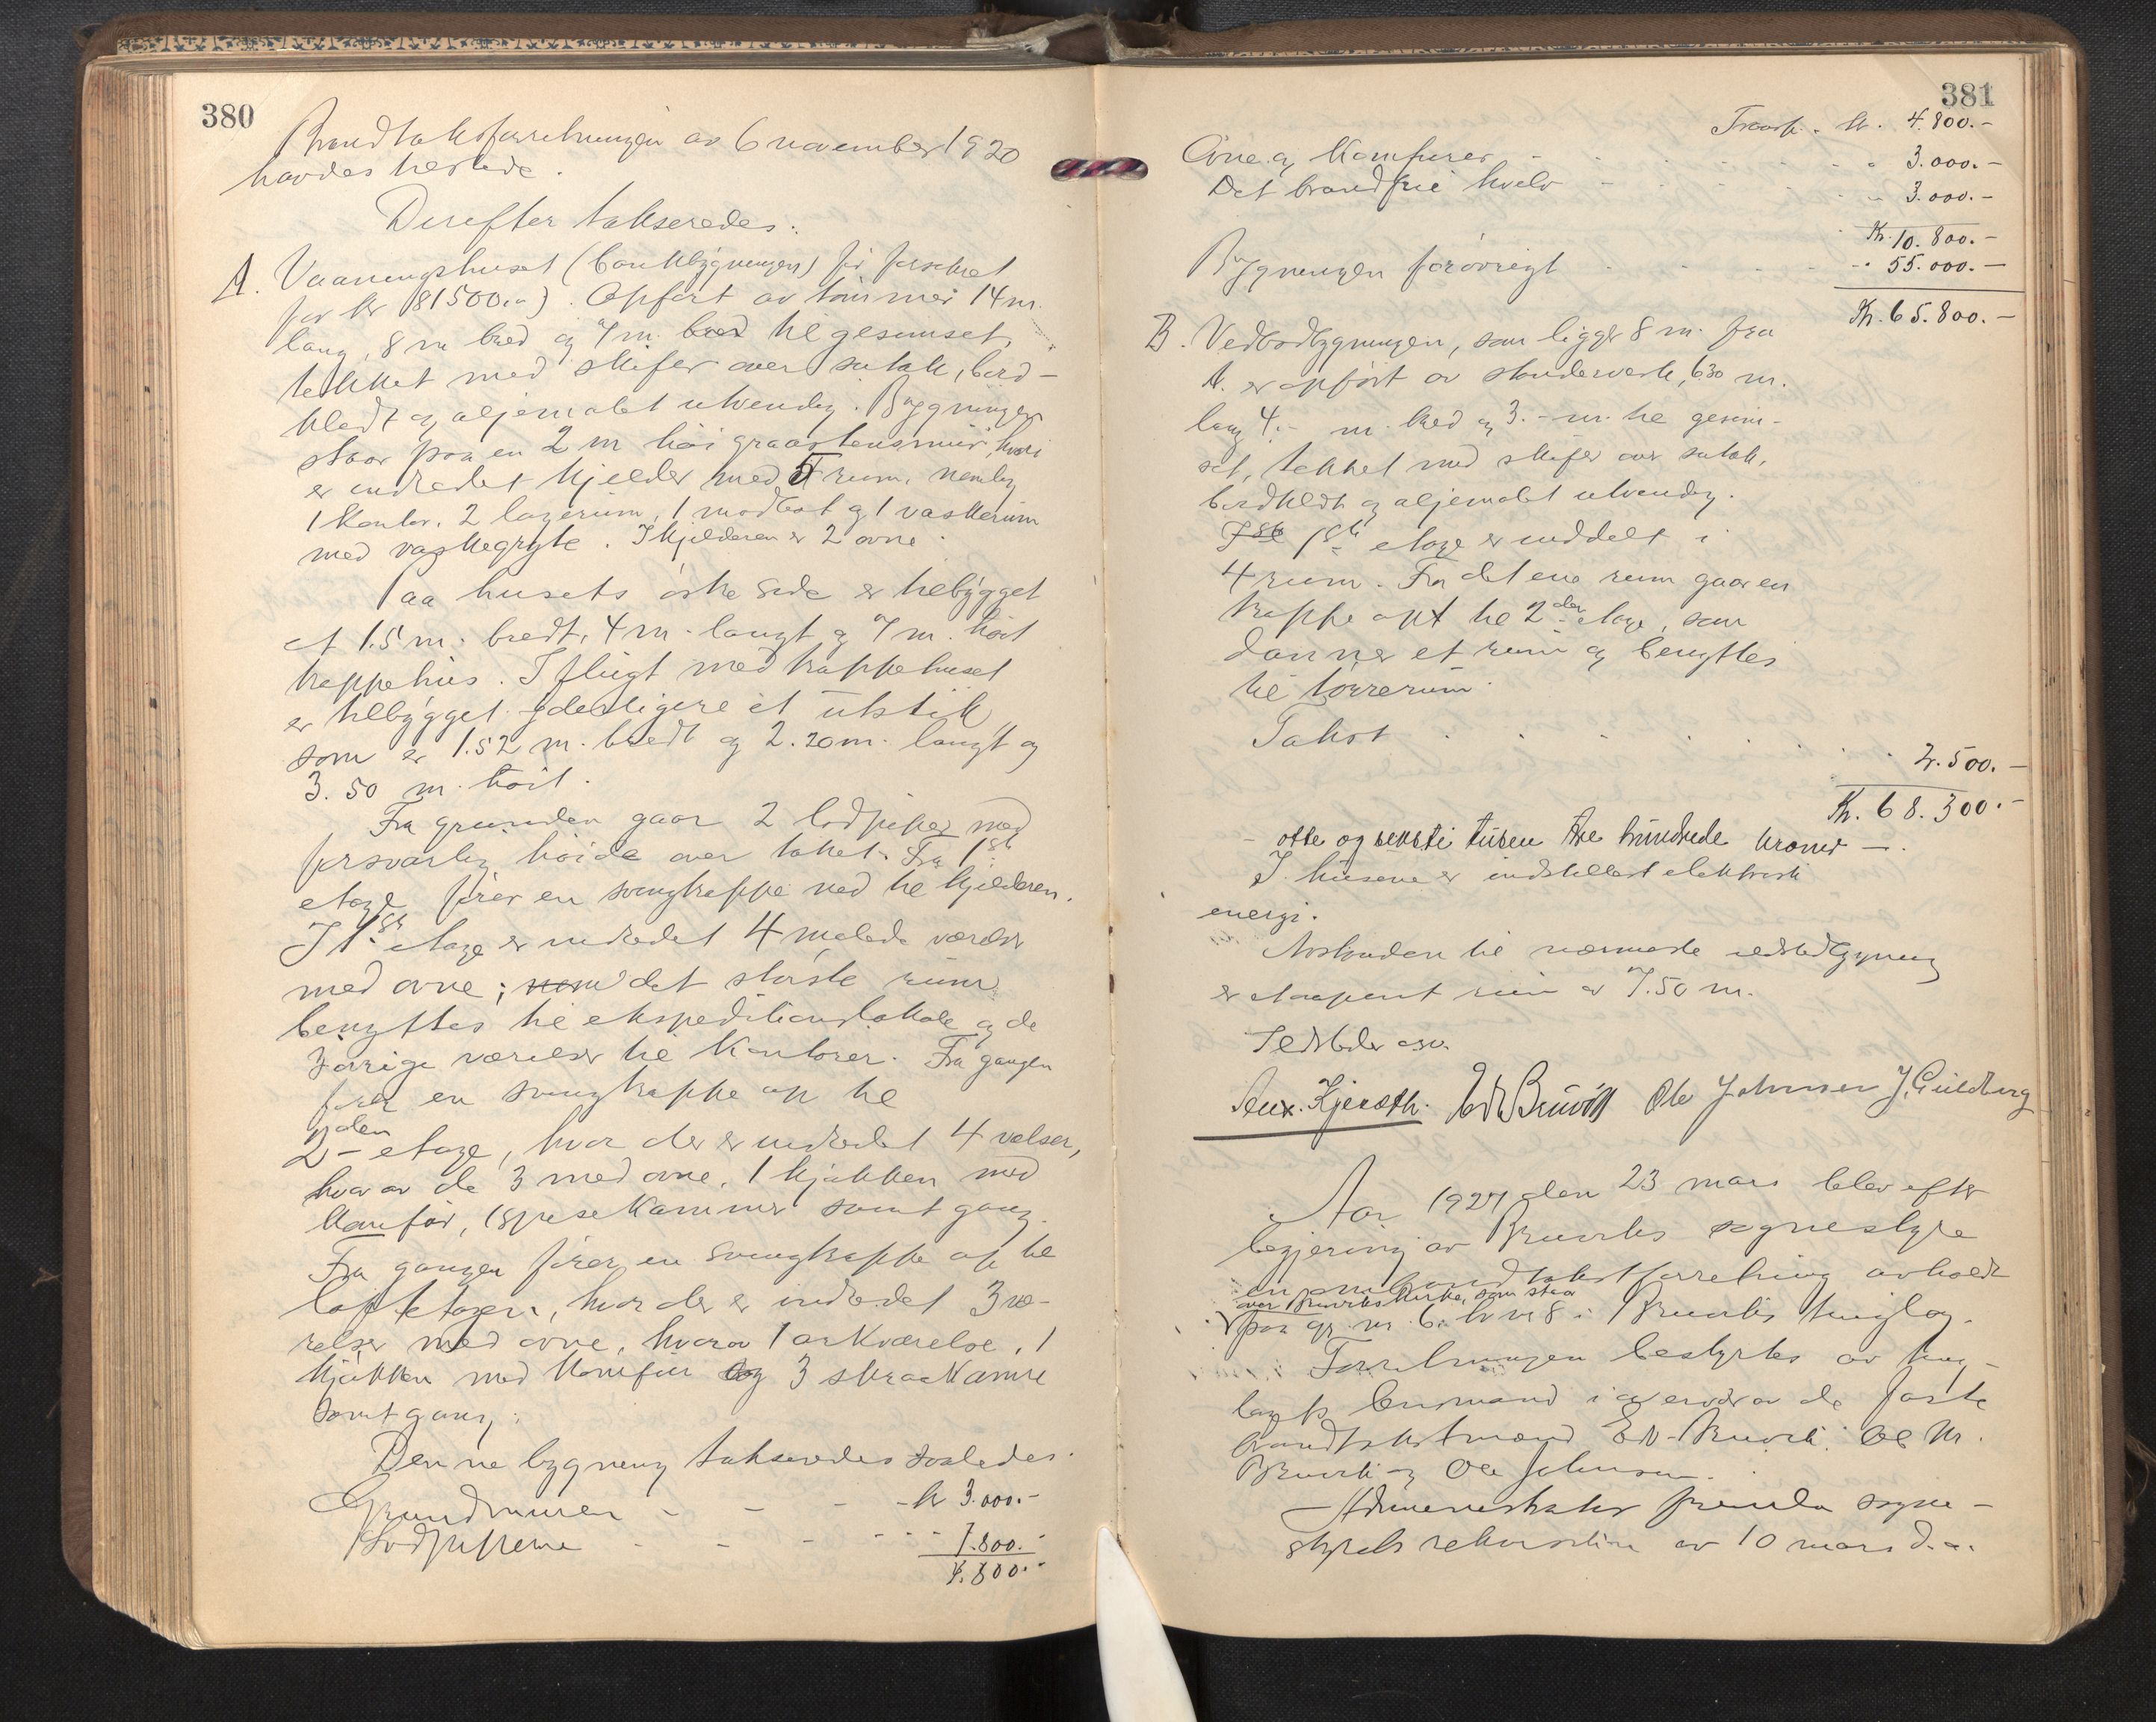 380
Brandtakstforretningen av 6 november 1920
havdes tilstede.
Derefter takseredes:
A. Vaaningshuset (bankbygningen) før forsikret
for kr 81500.-). Opført av tømmer 14 m.
lang, 8 m bred og 7 m. til gesimset,
tækket med skifer over sutak, bord-
klædt og oljemalet utvendig. Bygningen
staar paa en 2 m høi graastensmur, hvori
er indredet kjelder med 5 rum, nemlig
1 kontor, 2 lagerum, 1 matbod og 1 vaskerum
med vaskegryte. I kjelderen er 2 ovne.
Paa husets østre side er tilbygget
et 1.5 m. bredt, 4 m. langt og 7 m. høit
trappehus. I flugt med trappehuset
er tilbygget yderligere et utstik
som er 1.52 m. bredt og 2.20 m. langt og
3.50 m. høit.
Fra grunden gaar 2 lodpiper med
forsvarlig høide over taket. Fra 1ste
etage fører en svingtrappe ned til kjelderen.
I 1ste etage er indredet 4 malede værelser
med ovne; det største rum
benyttes til ekspeditionslokale og de
3 øvrige værelser til kontorer. Fra gangen
fører en svingtrappe op til
2den etage, hvor der er indredet 4 velser,
hvorav de 3 med ovne, 1 kjøkken med
komfør, 1 spisekammer samt gang.
Fra gangen fører en svingtrappe op til
loftetagen, hvor der er indredet 3 væ-
relser med ovne, hvorav 1 arkværelse, 1
kjøkken med komfür og 3 skraakamre
samt gang.
Denne bygning takseredes saaledes:
Grundmuren - - - kr 3.000.-
Lodpiperne - - - 1.800.-
4.800.-
381
Transp. kr. 4.800.-
Ovne og komfurer - 3.000.-
Det brandfrie hvelv - 3.000.-
Kr. 10.800.-
Bygningen forøvrigt - 55.000.-
Kr. 65.800.-
B. Vedbodbygningen, som ligger 8 m. fra
A. er opført av stenderverk, 6.30 m.
lang 4.- m. bred og 3.- m. til gesim-
set, tækket med skifer over sutak,
bordklædt og oljemalet utvendig.
1ste etage er inddelt i
4 rum. Fra det ene rum gaar en
trappe opt til 2den etage, som
danner et rum og benyttes
til tørrerum.
Takst 2.500.-
Kr. 68.300.-
- otte og seksti tusen tre hundrede kroner -.
I husene er indstallert elektrisk
energi.
Avstanden til nærmeste ildstedbygning
er et aapent rum av 7.50 m.
Ildsteder osv.
Ole Johnsen J. Guldberg
Aar 1927 den 23 mars blev efter
begjæring av Bruviks sognestyre
en brandtakstforretning avholdt
over Bruviks kirke, som staar
paa gr. nr. 6. br nr 8 i Bruviks tinglag.
Forretningen bestyrtes av ting-
lagets lensmand i overvær av de faste
brandtakstmænd Ole Kr.
Bruvik og Ole Johnsen.
Administrator fremla sogne-
styrets rekvisition av 10 mars d.a.